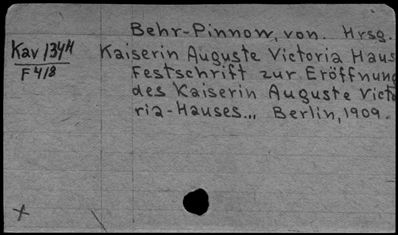 Behr-Pinnow, von. Hrsg.
Kav 134H
F418
Kaiserin Auguste Victoria Haus
Festschrift zur Eröffnung
des Kaiserin Auguste Victo
ria-Hauses... Berlin, 1909.